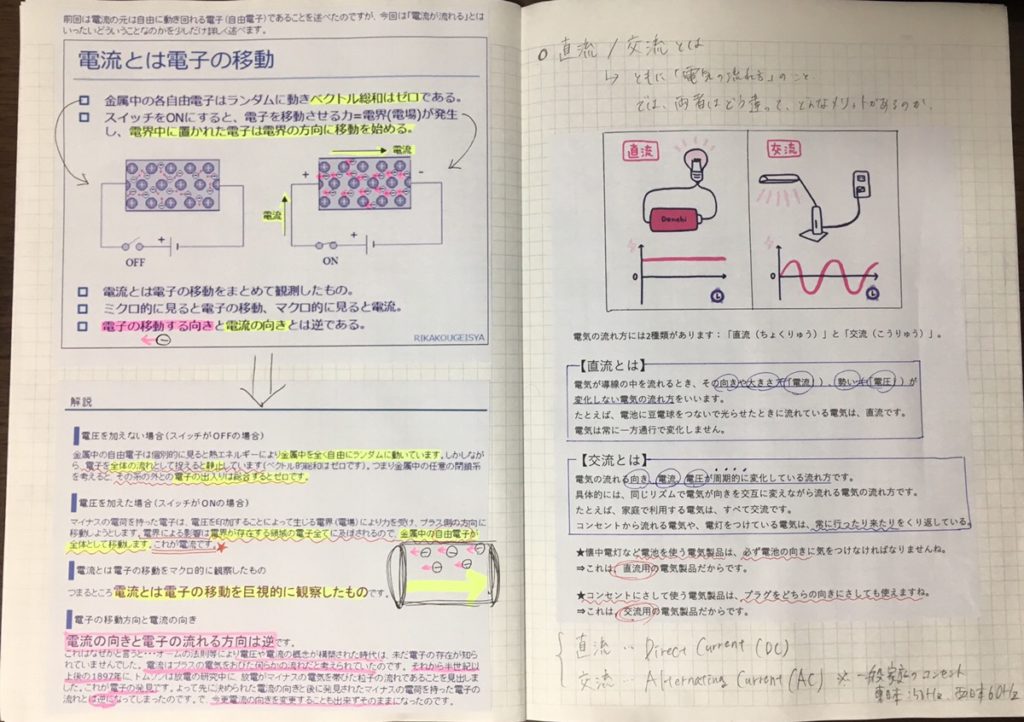 前回は電流の元は自由に動き回れる電子(自由電子)であることを述べたのですが、今回は「電流が流れる」とは
いったいどういうことなのかを少しだけ詳しく述べます。
電流とは電子の移動
金属中の各自由電子はランダムに動きベクトル総和はゼロである。
スイッチをONにすると、電子を移動させる力=電界(電場)が発生
し、電界中に置かれた電子は電界の方向に移動を始める。
電流
+
-
電流
+
OFF
+
ON
電流とは電子の移動をまとめて観測したもの。
ミクロ的に見ると電子の移動、マクロ的に見ると電流。
電子の移動する向きと電流の向きとは逆である。
RIKAKOUGEISYA
解説
電圧を加えない場合(スイッチがOFFの場合)
金属中の自由電子は個別的に見ると熱エネルギーにより金属中を全く自由にランダムに動いています。しかしなが
ら、電子を全体の流れとして捉えると静止しています(ベクトル的総和はゼロです)。つまり金属中の任意の閉鎖系
を考えると、その系の外との電子の出入りは総合するとゼロです。
電圧を加えた場合(スイッチがONの場合)
マイナスの電荷を持った電子は、電圧を印加することによって生じる電界(電場)により力を受け、プラス側の方向に
移動しようとします。電界による影響は電界が存在する領域の電子全てに及ぼされるので、金属中の自由電子が
全体として移動します。これが電流です。
電流とは電子の移動をマクロ的に観察したもの
つまるところ電流とは電子の移動を巨視的に観察したものです。
電子の移動方向と電流の向き
電流の向きと電子の流れる方向は逆です。
これはなぜかと言うと・・・オームの法則等により電圧や電流の概念が構築された時代は、未だ電子の存在が知
られていませんでした。電流はプラスの電気をおびた何らかの流れだと考えられていたのです。それから半世紀以
上後の1897年に、トムソンが放電の研究中に、放電がマイナスの電気を帯びた粒子の流れであることを見出しま
した。これが電子の発見です。よって先に決められた電流の向きと後に発見されたマイナスの電荷を持った電子の
流れとは逆になってしまったのです。で、今更電流の向きを変更することも出来ずそのままになったのです。
直流/交流とは
ともに「電気の流れ方」のこと
では、両者はどう違って、どんなメリットがあるのか。
直流
交流
Denchi
0
0
電気の流れ方には2種類があります:「直流(ちょくりゅう)」と「交流(こうりゅう)」。
【直流とは】
電気が導線の中を流れるとき、その向きや大きさ(電流)、勢い(電圧)が
変化しない電気の流れ方をいいます。
たとえば、電池に豆電球をつないで光らせたときに流れている電気は、直流です。
電気は常に一方通行で変化しません。
【交流とは】
電気の流れる向き、電流、電圧が周期的に変化している流れ方です。
具体的には、同じリズムで電気が向きを交互に変えながら流れる電気の流れ方です。
たとえば、家庭で利用する電気は、すべて交流です。
コンセントから流れる電気や、電灯をつけている電気は、常に行ったり来たりをくり返している。
★懐中電灯など電池を使う電気製品は、必ず電池の向きに気をつけなければなりませんね。
⇒これは、直流用の電気製品だからです。
★コンセントにさして使う電気製品は、プラグをどちらの向きにさしても使えますね。
⇒これは、交流用の電気製品だからです。
直流 … Direct Current (DC)
交流 … Alternating Current (AC) ※一般家庭のコンセント
東日本:50Hz、西日本60Hz